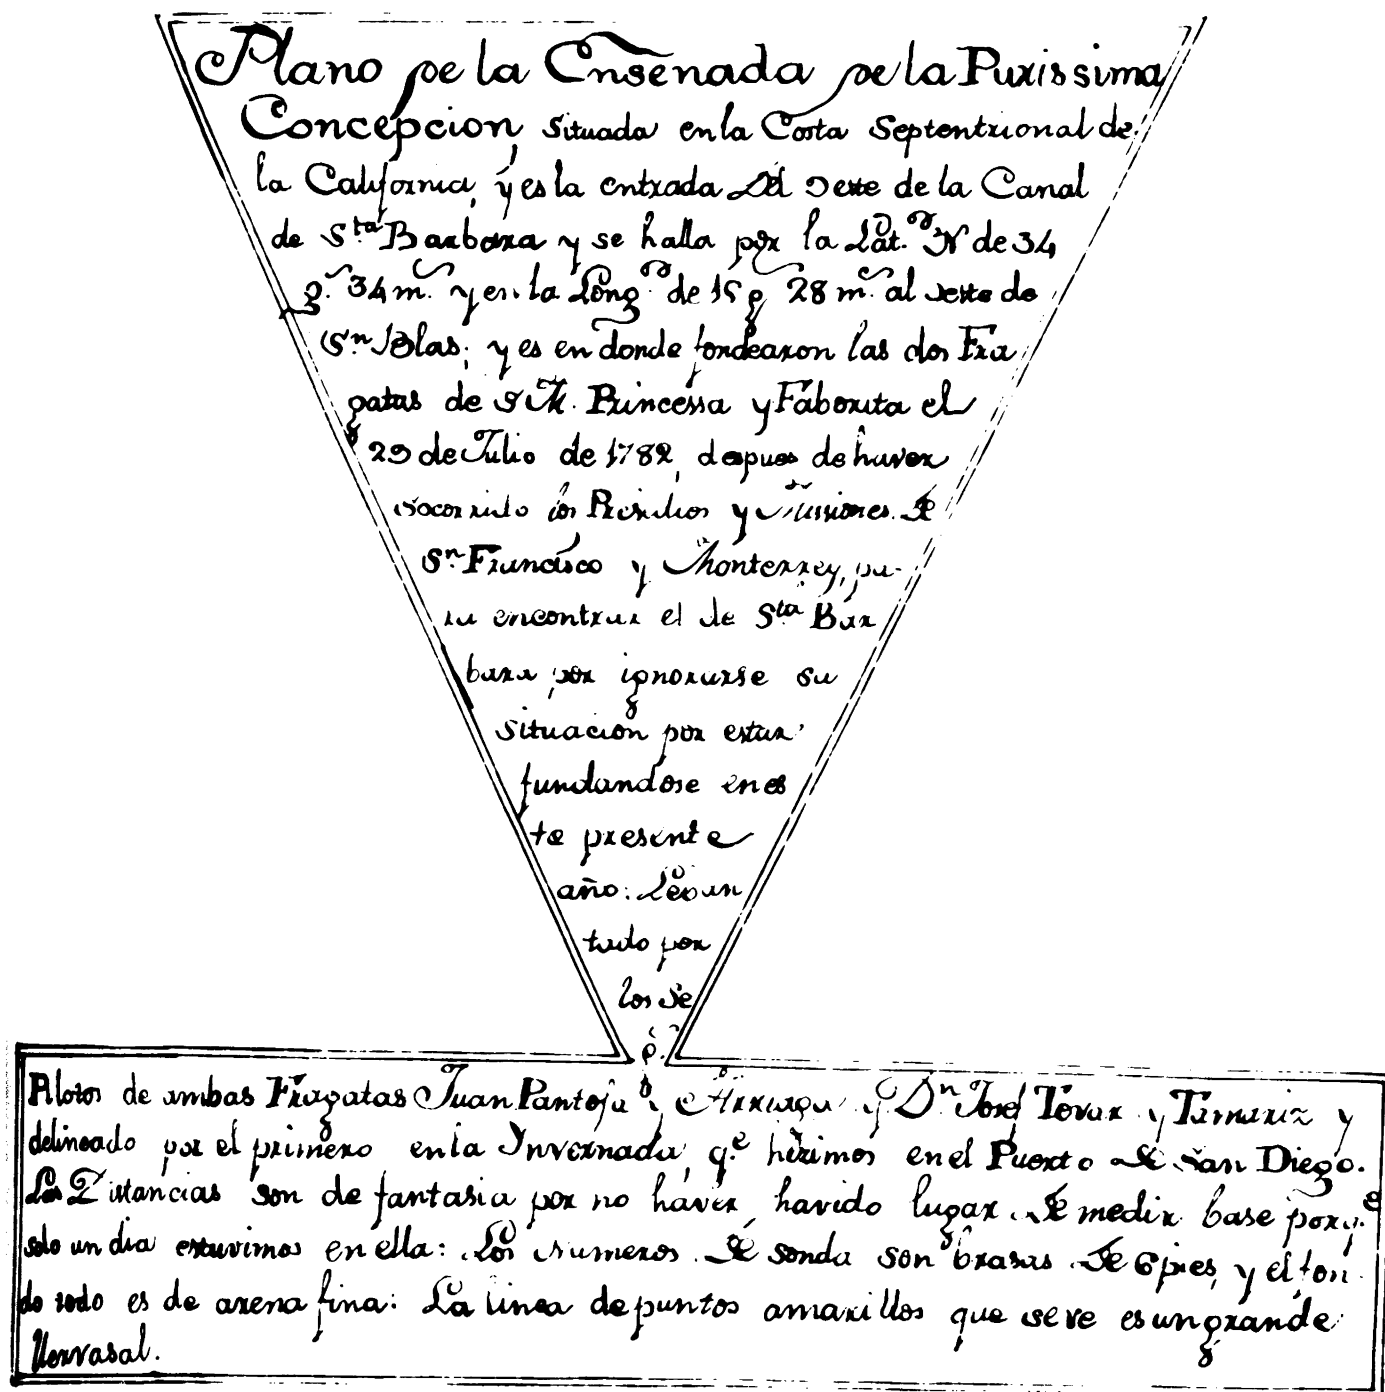 Plano de la Ensenada de la Purissima
Concepcion, situada en la Costa Septentrional de
la California, y es la entrada del oeste de la Canal
de S.ta Barbara y se halla por la Lat.d N de 34
g.s 34 m.s y en la Long.d de 15 g 28 m.s al oeste de
S.n Blas; y es en donde fondearon las dos Fra
gatas de S M. Princessa y Faborita el
29 de Julio de 1782, despues de haver
socorrido los Presidios y Missiones de
S.n Francisco y Monterrey, pa-
ra encontrar el de S.ta Bar
bara por ignorarse su
situacion por estar
fundandose en es
te presente
año: Levan
tado por
los Se
g.
Pilotos de ambas Fragatas Juan Pantoja y Arriaga y D.n Josef Tovar y Tamariz y
delineado por el primero en la Invernada, q.e hizimos en el Puerto de San Diego.
Las Distancias son de fantasia por no haver havido lugar de medir base por q.e
solo un dia estuvimos en ella: Los Numeros de sonda son brasas de 6 pies, y el fon
do todo es de arena fina: La linea de puntos amarillos que se ve es un grande
Yervasal.